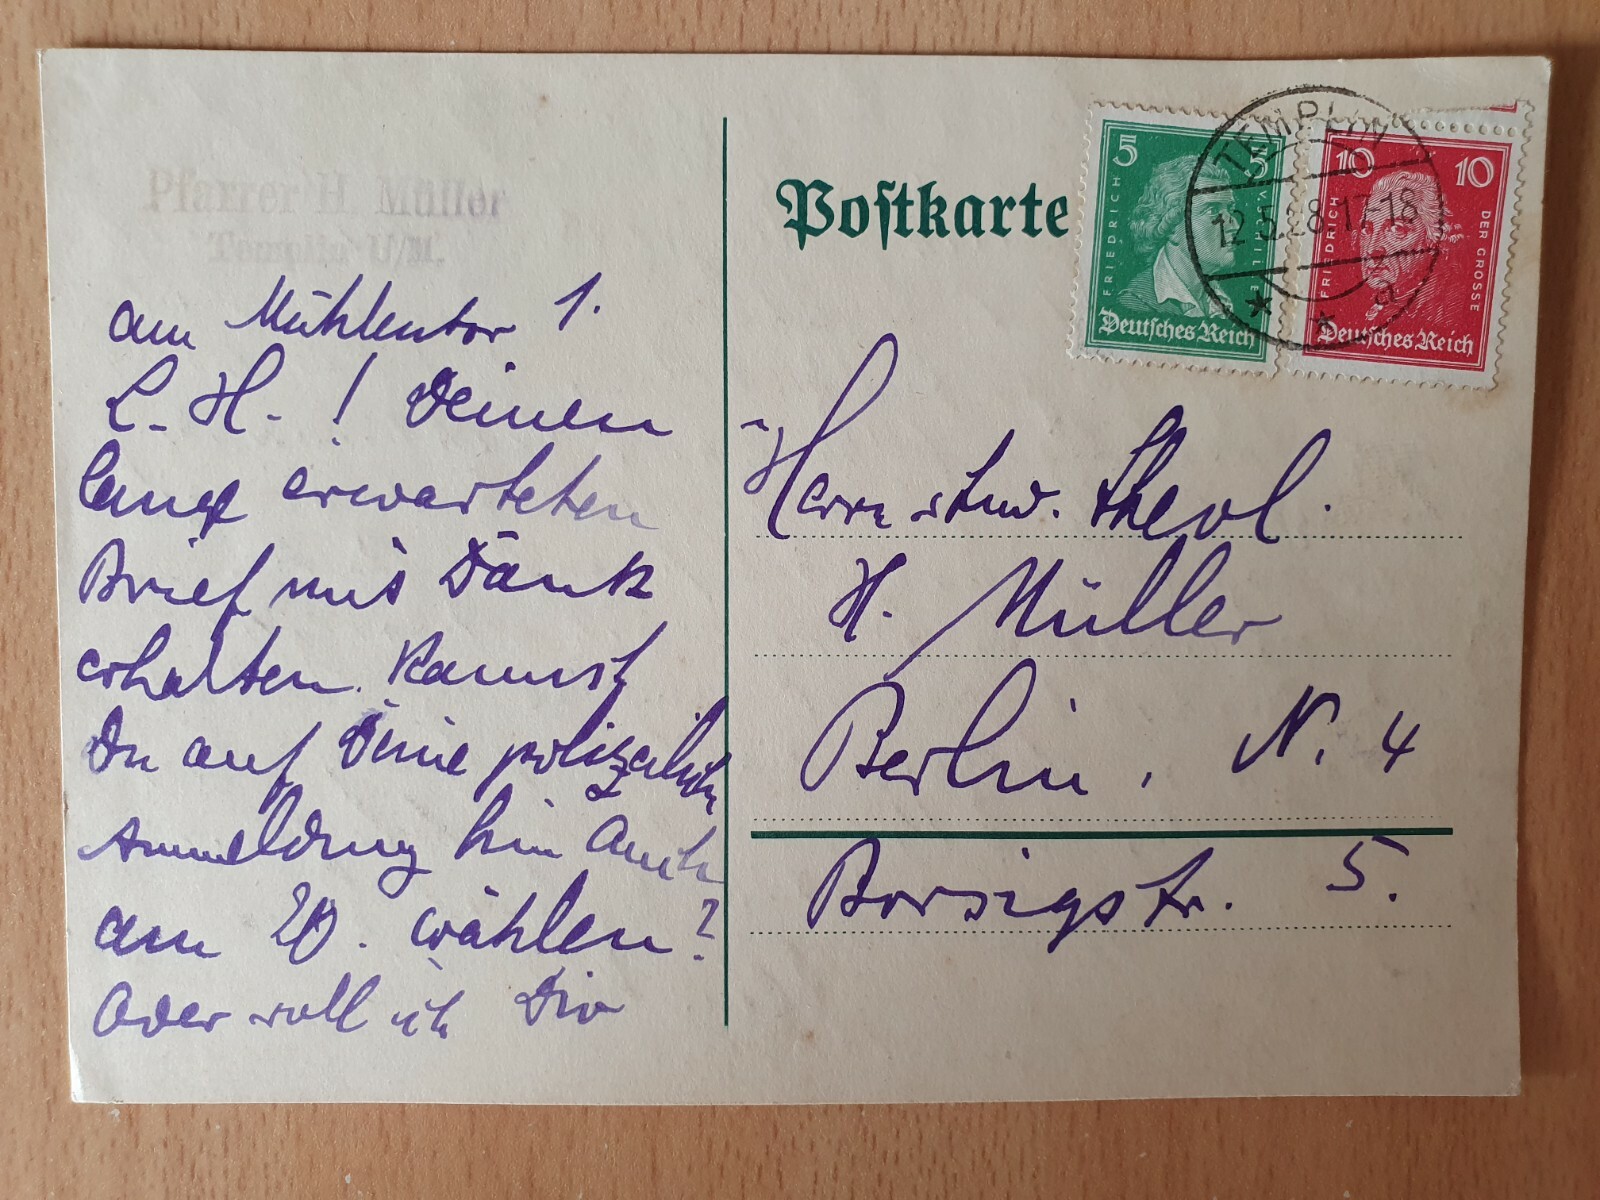 Pfarrer H. Müller
Templin U/M.
am Mühlentor 1.
L. H. ! Deinen
lange erwarteten
Brief mit Dank
erhalten. Kannst
Du auf Deine polizeiliche
Anmeldung hin auch
am 20. wählen?
Oder soll ich Dir
Postkarte
5 5
FRIEDRICH V. SCHILLER
Deutsches Reich
10 10
FRIEDRICH DER GROSSE
Deutsches Reich
TEMPLIN
12.5.28.17-18
a
Herrn stud. theol.
H. Müller
Berlin, N. 4
Borsigstr. 5.